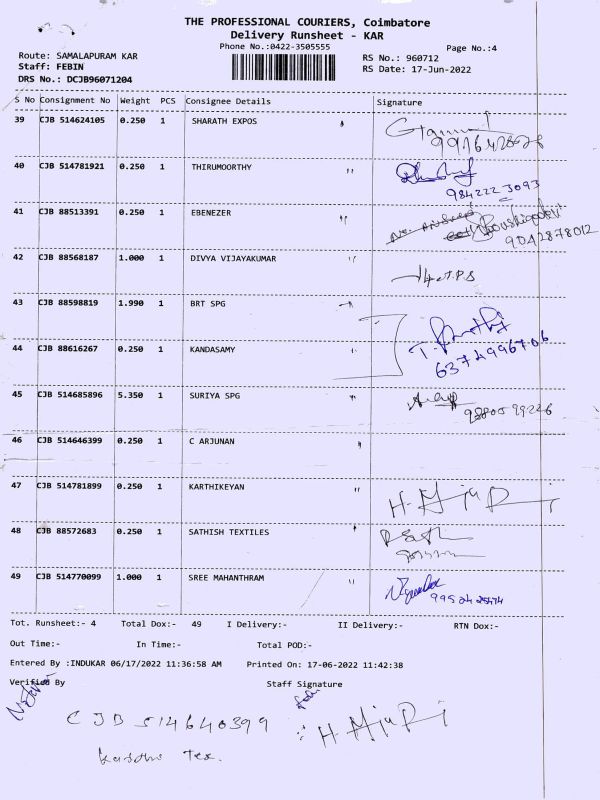 THE PROFESSIONAL COURIERS, Coimbatore
Delivery Runsheet - KAR
Phone No.:0422-3505555
Page No.:4
Route: SAMALAPURAM KAR
RS No.: 960712
Staff: FEBIN
RS Date: 17-Jun-2022
DRS No.: DCJB96071204
S No Consignment No Weight PCS Consignee Details Signature
39 CJB 514624105 0.250 1 SHARATH EXPOS
40 CJB 514781921 0.250 1 THIRUMOORTHY
984222 3093
41 CJB 88513391 0.250 1 EBENEZER
9042878012
42 CJB 88568187 1.000 1 DIVYA VIJAYAKUMAR
43 CJB 88598819 1.990 1 BRT SPG
44 CJB 88616267 0.250 1 KANDASAMY
6374996706
45 CJB 514685896 5.350 1 SURIYA SPG
98805 99226
46 CJB 514646399 0.250 1 C ARJUNAN
47 CJB 514781899 0.250 1 KARTHIKEYAN
48 CJB 88572683 0.250 1 SATHISH TEXTILES
49 CJB 514770099 1.000 1 SREE MAHANTHRAM
Tot. Runsheet:- 4 Total Dox:- 49 I Delivery:- II Delivery:- RTN Dox:-
Out Time:- In Time:- Total POD:-
Entered By :INDUKAR 06/17/2022 11:36:58 AM Printed On: 17-06-2022 11:42:38
Verified By Staff Signature
CJB 514640399
Tex.